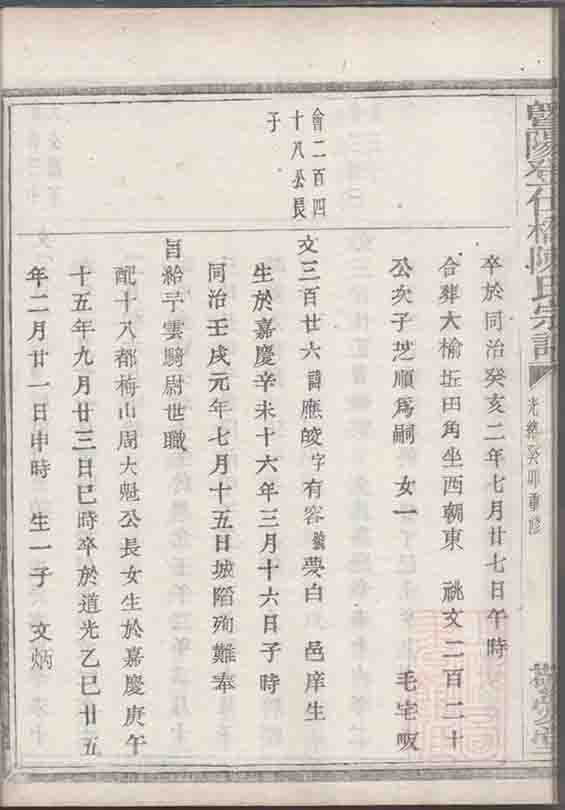 暨陽孝仁橋陳氏宗譜
光緒癸卯重修
卒於同治癸亥二年七月廿七日午時
合葬大榆坵田角坐西朝東 祧文二百二十
公次子芝順爲嗣 女一 毛宅
會二百四
十八公長
子
文三百廿六諱應皎字有容號夢白 邑庠生
生於嘉慶辛未十六年三月十六日子時
同治壬戌元年七月十五日城陷殉難奉
旨給予雲騎尉世職
配十八都梅山周大魁公長女生於嘉慶庚午
十五年九月廿三日巳時卒於道光乙巳廿五
年二月廿一日申時 生一子 文炳